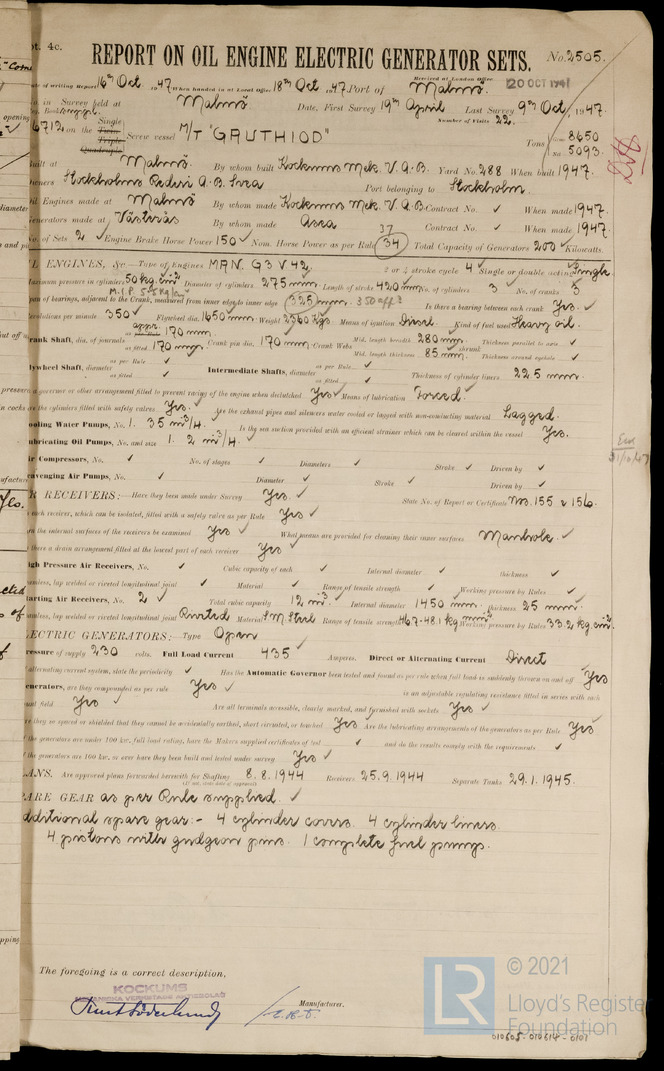 pt. 4c.
REPORT ON OIL ENGINE ELECTRIC GENERATOR SETS. No. 2505.
Received at London Office 20 OCT 1947
te of writing Report 16th Oct. 1947 When handed in at Local Office 18th Oct 1947. Port of Malmö.
o. in Survey held at Malmö Date, First Survey 19th April Last Survey 9th Oct, 1947.
Number of Visits 22.
6712 on the Single Twin Triple Quadruple Screw vessel M/T "GAUTHIOD" Tons 8650 5093
uilt at Malmö. By whom built Kockums Mek. V. A-B. Yard No. 288 When built 1947.
wners Stockholms Rederi A. B. Svea Port belonging to Stockholm.
il Engines made at Malmö By whom made Kockums Mek. V. A-B. Contract No. ✓ When made 1947.
enerators made at Västerås By whom made Asea Contract No. ✓ When made 1947.
o. of Sets 2 ✓ Engine Brake Horse Power 150 ✓ Nom. Horse Power as per Rule 37 34 Total Capacity of Generators 200 ✓ Kilowatts.
L ENGINES, &c.—Type of Engines MAN. G3V42. 2 or 4 stroke cycle 4 Single or double acting Single
aximum pressure in cylinders 50 kg.cm2 Diameter of cylinders 275 mm. Length of stroke 420 mm. No. of cylinders 3 No. of cranks 3
pan of bearings, adjacent to the Crank, measured from inner edge to inner edge 325 mm. Is there a bearing between each crank Yes. ✓
evolutions per minute 350 ✓ Flywheel dia. 1650 mm. Weight 2360 kgs Means of ignition Diesel Kind of fuel used Heavy oil.
rank Shaft, dia. of journals appr. 170 mm. as fitted 170 mm. Crank pin dia. 170 mm. Crank Webs Mid. length breadth 280 mm. Thickness parallel to axis ✓
Mid. length thickness 85 mm. shrunk Thickness around eyehole ✓
lywheel Shaft, diameter as per Rule ✓ as fitted ✓ Intermediate Shafts, diameter as per Rule ✓ as fitted ✓ Thickness of cylinder liners 22.5 mm.
a governor or other arrangement fitted to prevent racing of the engine when declutched Yes ✓ Means of lubrication Forced.
re the cylinders fitted with safety valves Yes. ✓ Are the exhaust pipes and silencers water cooled or lagged with non-conducting material Lagged.
ooling Water Pumps, No. 1. 35 m3/h. Is the sea suction provided with an efficient strainer which can be cleared within the vessel Yes.
ubricating Oil Pumps, No. and size 1. 2 m3/h. ✓
ir Compressors, No. ✓ No. of stages ✓ Diameters ✓ Stroke ✓ Driven by ✓
cavenging Air Pumps, No. ✓ Diameter ✓ Stroke ✓ Driven by ✓
R RECEIVERS:—Have they been made under Survey Yes. ✓ State No. of Report or Certificate Nos. 155 & 156.
each receiver, which can be isolated, fitted with a safety valve as per Rule Yes ✓
n the internal surfaces of the receivers be examined Yes ✓ What means are provided for cleaning their inner surfaces Manhole. ✓
there a drain arrangement fitted at the lowest part of each receiver Yes ✓
igh Pressure Air Receivers, No. ✓ Cubic capacity of each ✓ Internal diameter ✓ thickness ✓
eamless, lap welded or riveted longitudinal joint ✓ Material ✓ Range of tensile strength ✓ Working pressure by Rules ✓
tarting Air Receivers, No. 2 ✓ Total cubic capacity 12 m3. Internal diameter 1450 mm. thickness 25 mm.
eamless, lap welded or riveted longitudinal joint Riveted Material S.M. Steel Range of tensile strength 46.7-48.1 kg mm2 Working pressure by Rules 33.2 kg.cm2
LECTRIC GENERATORS:—Type Open
ressure of supply 230 volts. Full Load Current 435 ✓ Amperes. Direct or Alternating Current Direct
f alternating current system, state the periodicity ✓ Has the Automatic Governor been tested and found as per rule when full load is suddenly thrown on and off Yes
enerators, are they compounded as per rule Yes ✓ is an adjustable regulating resistance fitted in series with each
unt field Yes ✓ Are all terminals accessible, clearly marked, and furnished with sockets Yes ✓
re they so spaced or shielded that they cannot be accidentally earthed, short circuited, or touched Yes Are the lubricating arrangements of the generators as per Rule Yes ✓
the generators are under 100 kw. full load rating, have the Makers supplied certificates of test ✓ and do the results comply with the requirements ✓
the generators are 100 kw. or over have they been built and tested under survey Yes ✓
LANS. Are approved plans forwarded herewith for Shafting 8.8.1944 Receivers 25.9.1944 Separate Tanks 29.1.1945.
ARE GEAR as per Rule supplied. ✓
dditional spare gear:- 4 cylinder covers. 4 cylinder liners.
4 pistons with gudgeon pins. 1 complete fuel pump.
The foregoing is a correct description,
KOCKUMS
Manufacturer.
© 2021
LR
Lloyd's Register
Foundation
010605-010614-0101